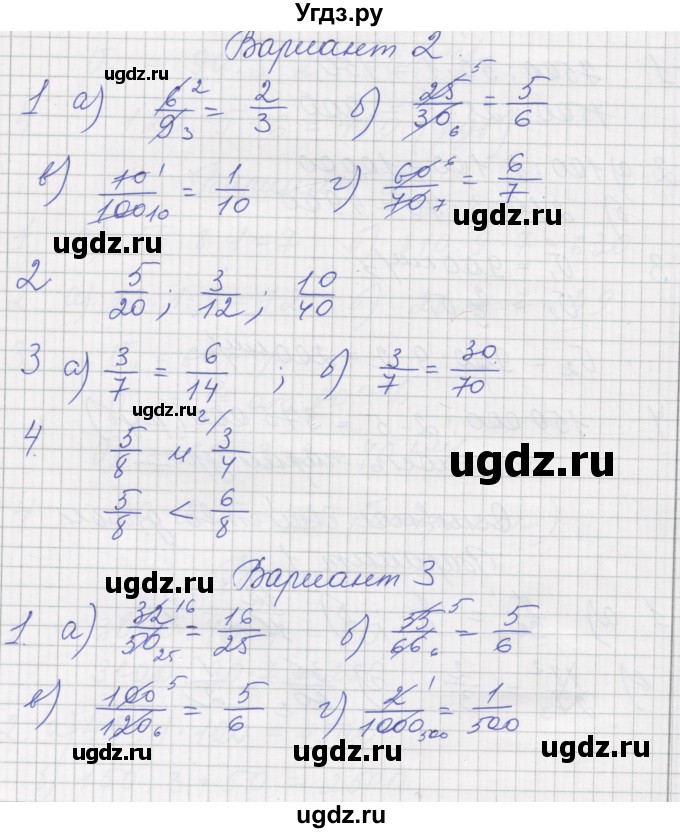 Угдз.ру
Вариант 2.
ugdz.ru
1 а) 6/9 = 2/3 б) 25/30 = 5/6
в) 10/100 = 1/10 г) 60/70 = 6/7
ugdz.ru ugdz.ru
2 5/20 ; 3/12 ; 10/40
3 а) 3/7 = 6/14 ; б) 3/7 = 30/70
ugdz.ru
4. 5/8 и 3/4
ugdz.ru
5/8 < 6/8
Вариант 3
ugdz.ru
1. а) 32/50 = 16/25 б) 55/66 = 5/6
в) 100/120 = 5/6 г) 2/1000 = 1/500
ugdz.ru ugdz.ru
ugdz.ru